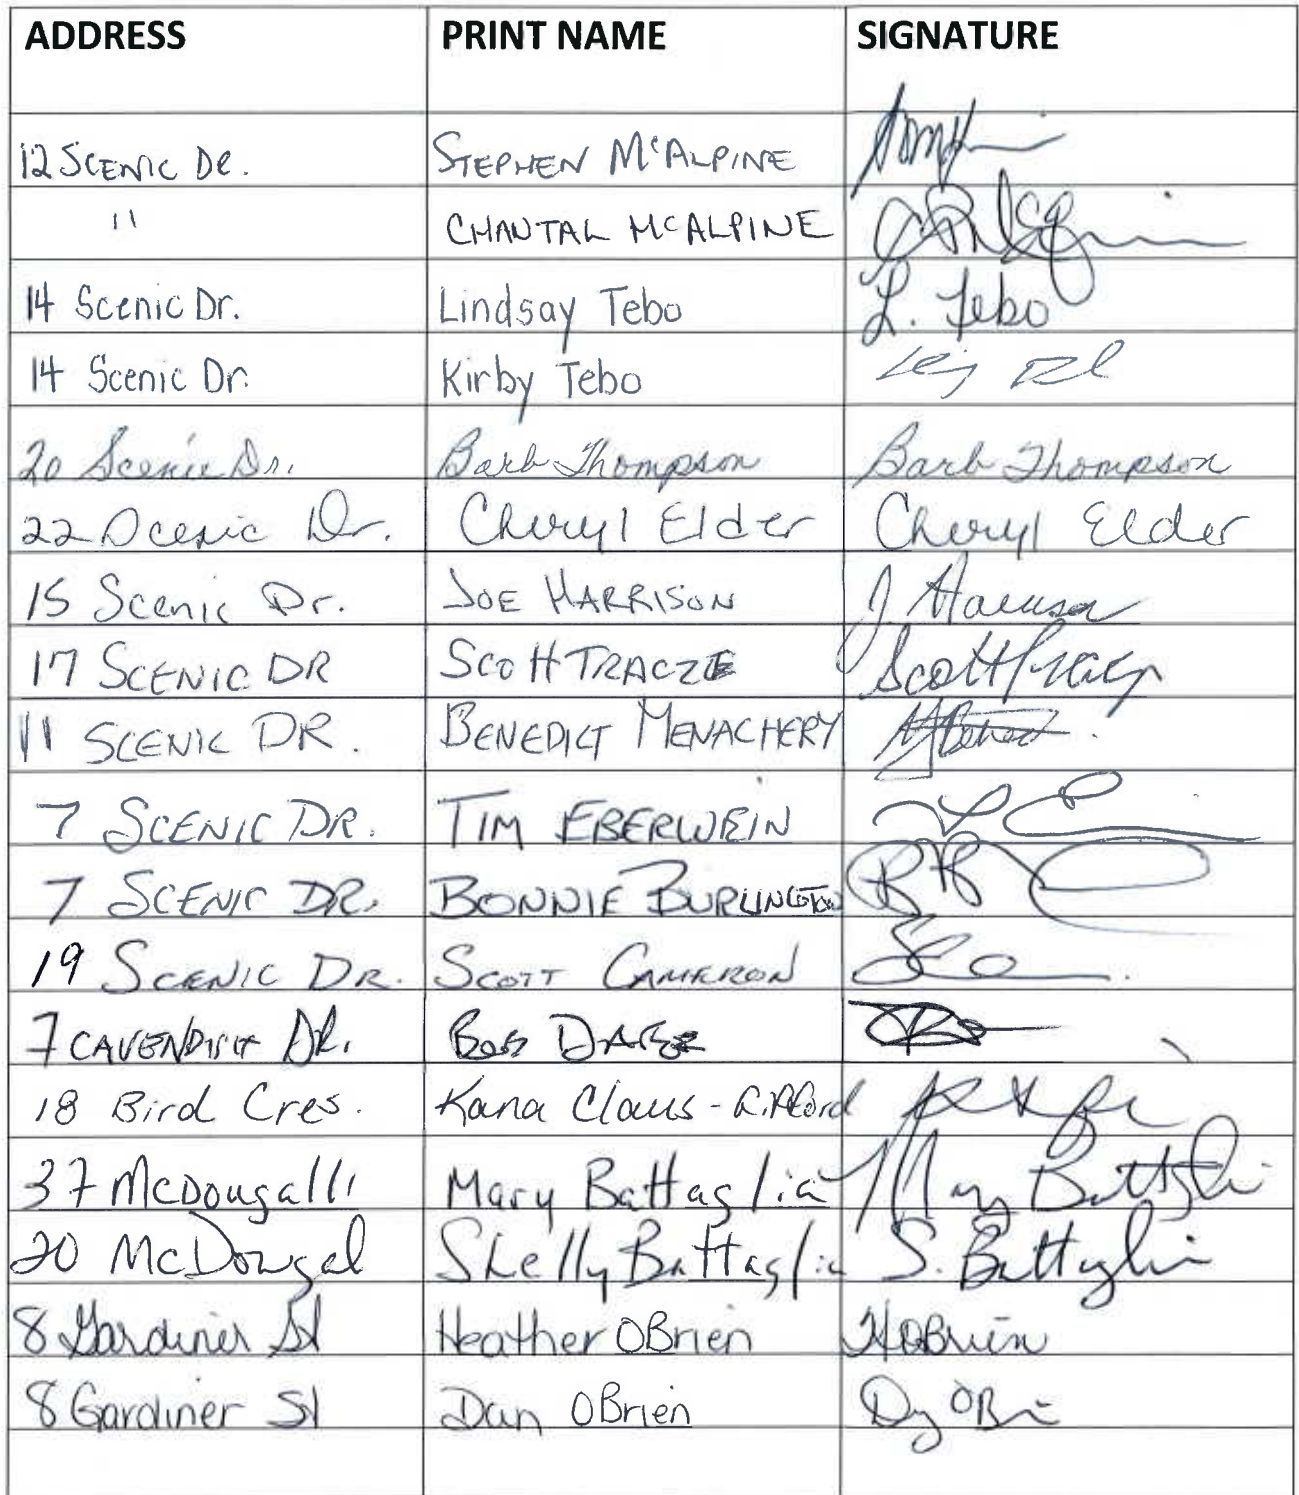 ADDRESS PRINT NAME SIGNATURE
12 SCENIC DR. STEPHEN McALPINE
" CHANTAL McALPINE
14 Scenic Dr. Lindsay Tebo L. Tebo
14 Scenic Dr. Kirby Tebo
20 Scenic Dr. Barb Thompson Barb Thompson
22 Scenic Dr. Cheryl Elder Cheryl Elder
15 Scenic Dr. JOE HARRISON J Harrison
17 SCENIC DR Scott TRACZE Scott
11 SCENIC DR. BENEDICT MENACHERY
7 SCENIC DR. TIM EBERWEIN
7 SCENIC DR. BONNIE BURLINGTON
19 SCENIC DR. SCOTT CAMERON
7 CAVENDISH DR. BOB
18 Bird Cres. Kana Claus-
37 McDougall Mary Battaglia Mary Battaglia
20 McDougal Shelly Battaglia S. Battaglia
8 Gardiner St Heather OBrien HOBrien
8 Gardiner St Dan OBrien